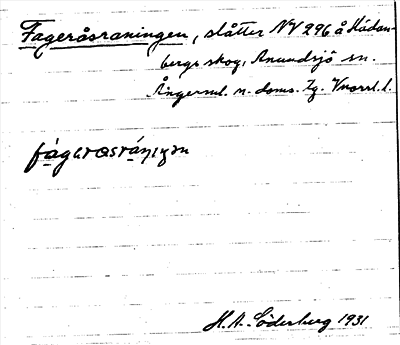 Fageråsraningen, slåtter NV 296 å Kådan-
bergs skog, Anundsjö sn.
Ångerml. n. doms. tg. Vnorrl. l.
H. A. Söderberg 1931